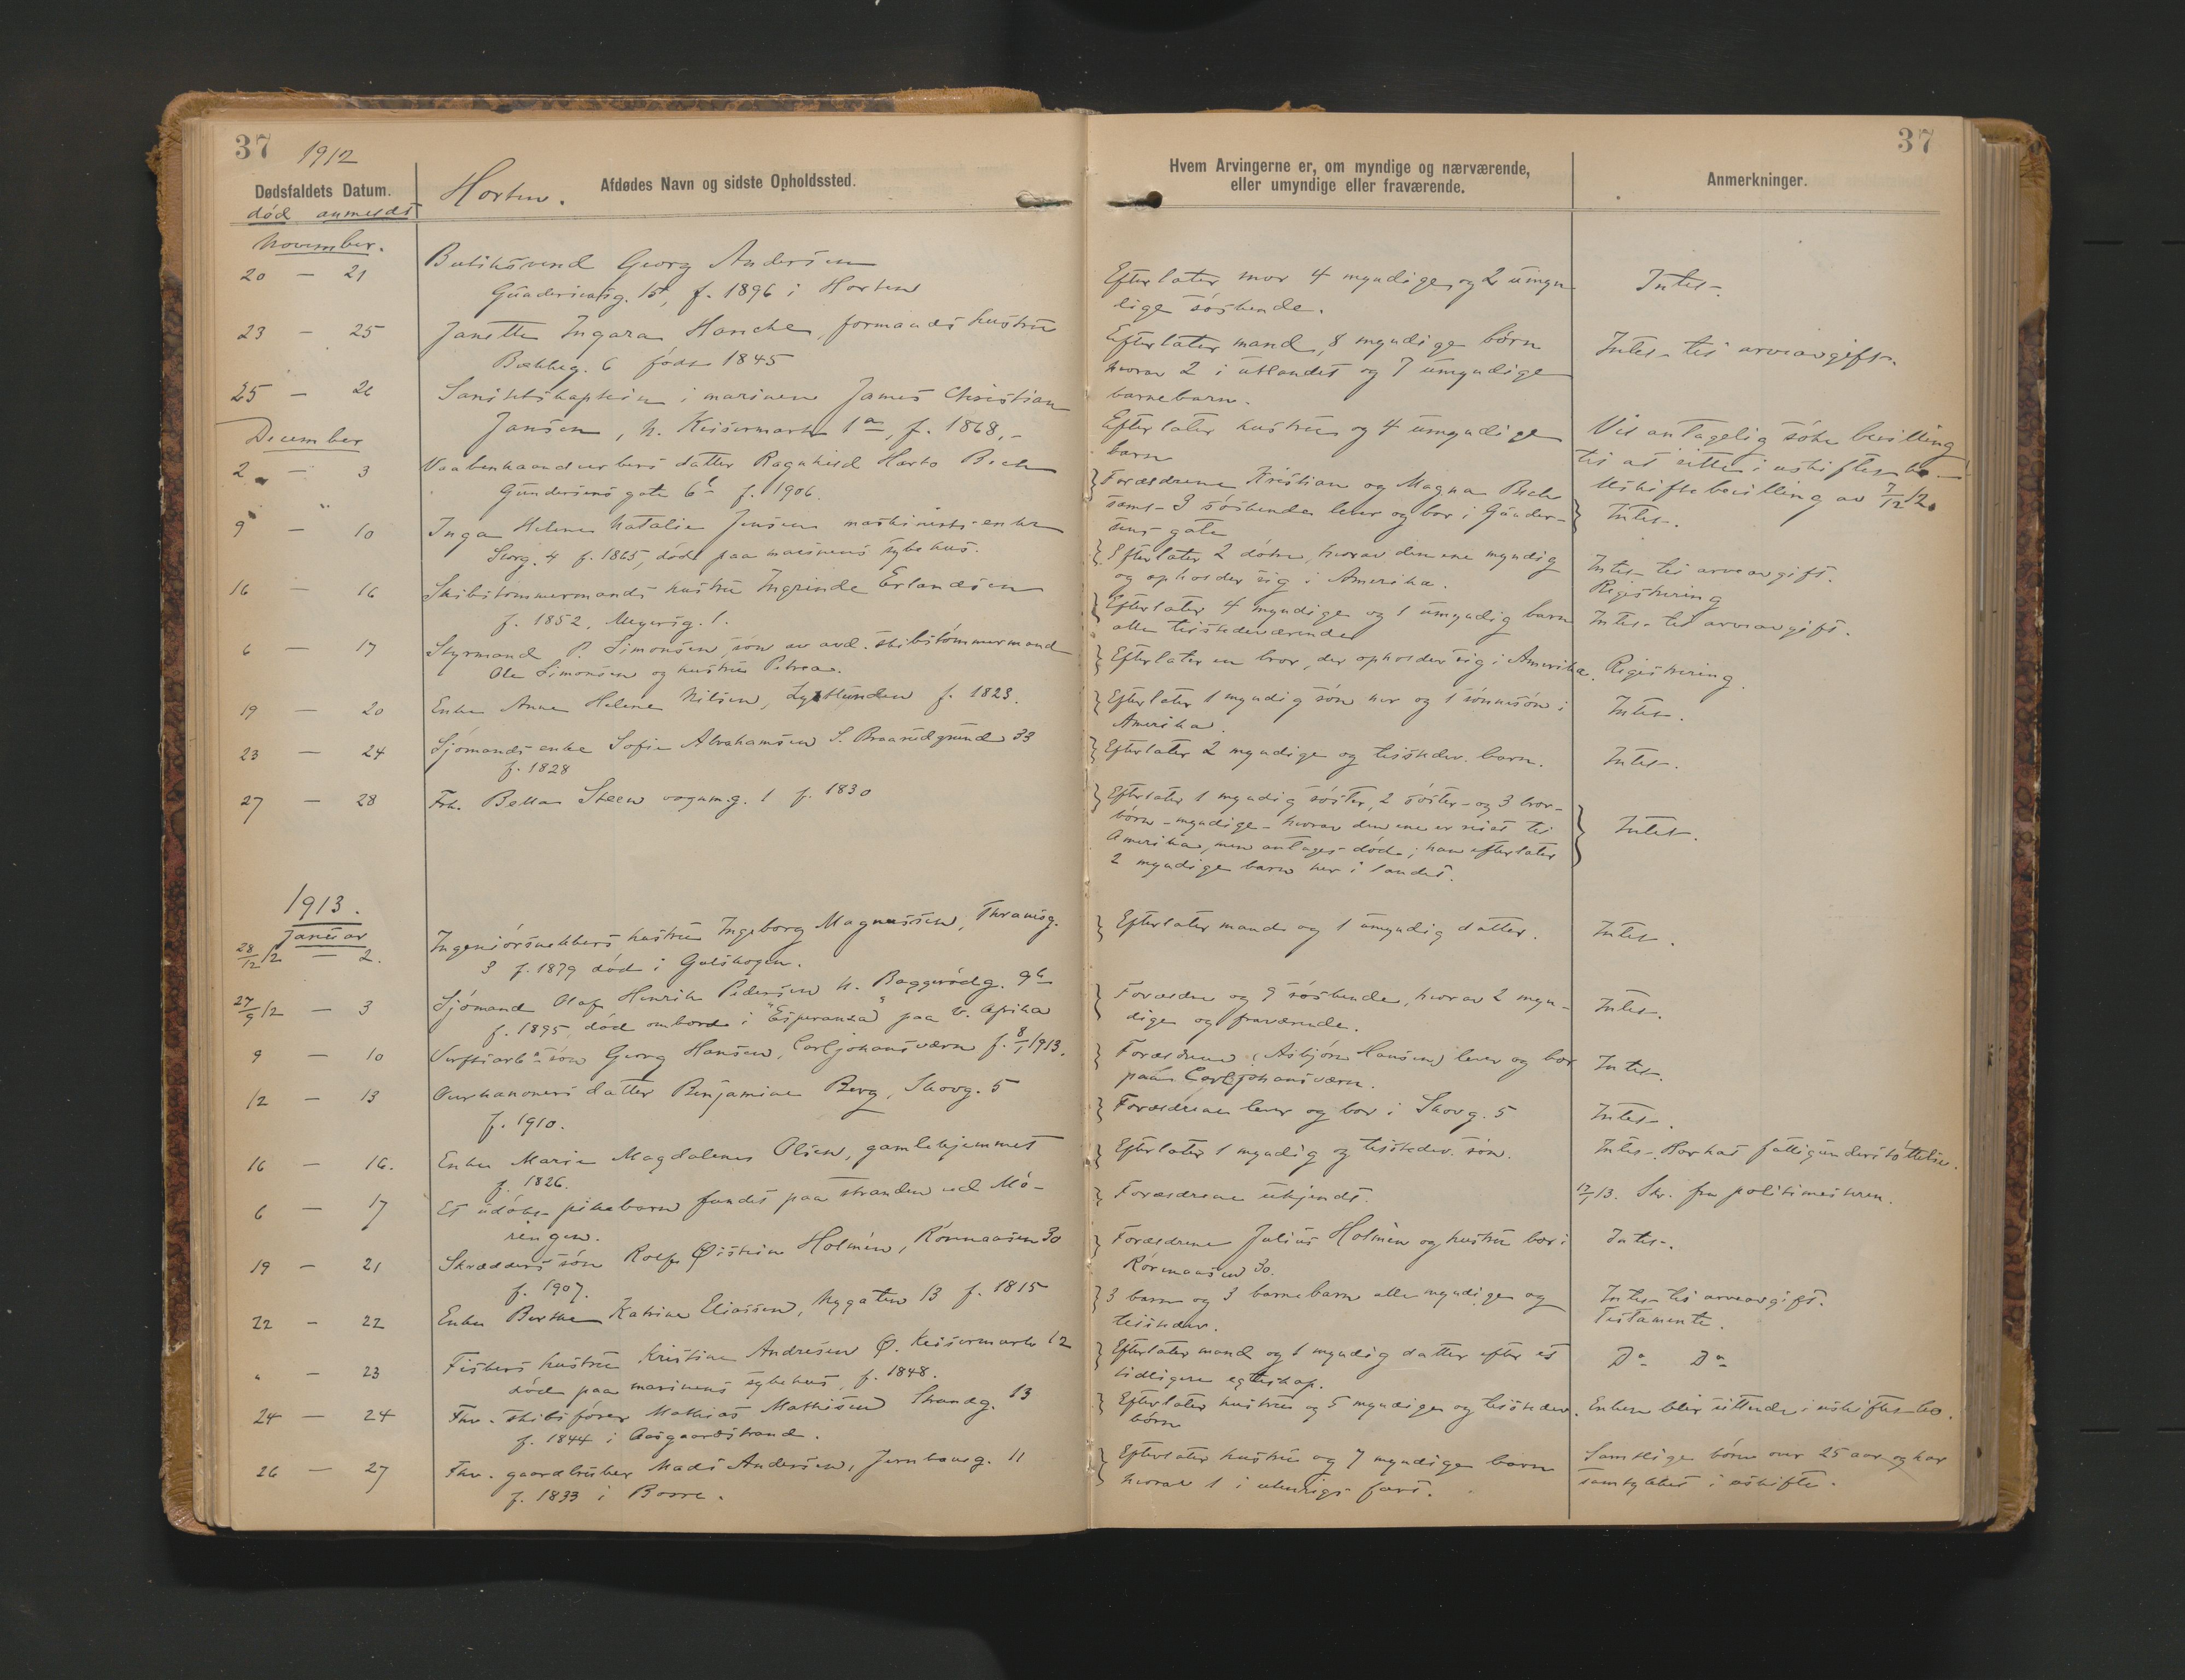 37
1912
Dødsfaldets Datum.
død anmeldt
Horten.
Afdødes Navn og sidste Opholdssted.
Hvem Arvingerne er, om myndige og nærværende,
eller umyndige eller fraværende.
Anmerkninger.
37
November.
20 — 21
Butiksvend Georg Andersen
Gundersensg. 15, f. 1896 i Horten
Efterlater mor 4 myndige og 2 umyn
dige søskende.
Intet.
23 — 25
Janette Ingara Hanche, formands hustru
Bækkeg. 6 født 1845
Efterlater mand, 8 myndige børn
hvorav 2 i utlandet og 7 umyndige
barnebarn.
Intet til arveavgift.
25 — 26
Sanitetskaptein i marinen James Christian
Jansen, N. Keisermark 1a, f. 1868,-
Efterlater hustru og 4 umyndige
barn
Vil antagelig søke bevilling
til at sitte i uskiftet bo
Uskiftebevilling av 7/12 12.
December
2 — 3
Vaabenhaandverkers datter Ragnhild Harto Bech
Gundersens gate 6b f. 1906.
Forældrene Kristian og Magna Bech
samt 3 søskende lever og bor i Gunder-
sens gate
Intet.
9 — 10
Inga Helene Natalie Jensen maskinists enke
Storg. 4 f. 1865, død paa marinens sykehus.
Efterlater 2 døtre, hvorav den ene myndig
og opholder sig i Amerika.
Intet til arveavgift.
Registrering
16 — 16
Skibstømmermands hustru Ingrinde Erlandsen
f. 1852, Meyersg. 1.
Efterlater 4 myndige og 1 umyndig barn
alle tilstedeværende
Intet til arveavgift.
6 — 17
Styrmand P. Simonsen, søn av avd. skibstømmermand
Ole Simonsen og hustru Petrea.
Efterlater en bror, der opholder sig i Amerika.
Registrering.
19 — 20
Enke Anne Helene Nilsen, Lystlunden f. 1823.
Efterlater 1 myndig søn her og 1 sønnesøn i
Amerika.
Intet.
23 — 24
Sjømands enke Sofie Abrahamsen S. Braarudgrund 33
f. 1828
Efterlater 2 myndige og tilstedev. barn.
Intet.
27 — 28
Frk. Bella Steen vognmg. 1 f. 1830
Efterlater 1 myndig søster, 2 søster- og 3 bror-
børn - myndige - hvorav den ene er reist til
Amerika, men antages død; han efterlater
2 myndige barn her i landet.
Intet.
1913.
Januar
28/12 12 — 2.
Ingeniørsnekkers hustru Ingeborg Magnussen, Thranesg.
3 f. 1879 død i Gulskogen.
Efterlater mand og 1 umyndig datter.
Intet.
27/9 12 — 3
Sjømand Olaf Henrik Pedersen N. Baggerødg. 9b
f. 1895, død ombord i "Esperanza" paa v. Afrika
Forældre og 9 søskende, hvorav 2 myn-
dige og fraværende.
Intet.
9 — 10
Verftsarb.s søn Georg Hansen, Carljohansværn f. 8/1 1913.
Forældrene (Asbjørn Hansen) lever og bor
paa Carljohansværn.
Intet.
12 — 13
Overkanoners datter Benjamine Berg, Skovg. 5
f. 1910.
Forældrene lever og bor i Skovg. 5
Intet.
16 — 16.
Enke Marie Magdalene Olsen, gamlehjemmet
f. 1826.
Efterlater 1 myndig og tilstedev. søn.
Intet. Har hat fattigunderstøttelse.
6 — 17
Et udøbt pikebarn fundet paa stranden ved Mø-
ringen.
Forældrene ukjendt.
17/1 13. Skr. fra politimesteren.
19 — 21
Skrædders søn Rolf Øistein Holmén, Rørmaasen 30
f. 1907.
Forældrene Julius Holmén og hustru bor i
Rørmaasen 30.
Intet.
22 — 22
Enke Berthe Katrine Eliassen, Nygaten 13 f. 1815
3 barn og 3 barnebarn alle myndige og
tilstedev.
Intet til arveavgift.
Testamente.
" — 23
Fiskers hustru Kristine Andresen Ø. Keisermark 12
død paa marinens sykehus, f. 1848.
Efterlater mand og 1 myndig datter efter et
tidligere egteskap.
Do Do
24 — 24
Fhv. skibsfører Mathias Mathisen Strandg. 13
f. 1844 i Aasgaardstrand.
Efterlater hustru og 5 myndige og tilstedev.
børn
Enken blir sittende i uskiftet bo.
26 — 27
Fhv. gaardbruker Mads Andersen, Jernbaneg. 11
f. 1833 i Borre.
Efterlater hustru og 7 myndige barn
hvorav 1 i utenrigs fart.
Samtlige børn over 25 aar og har
samtykket i uskifte.